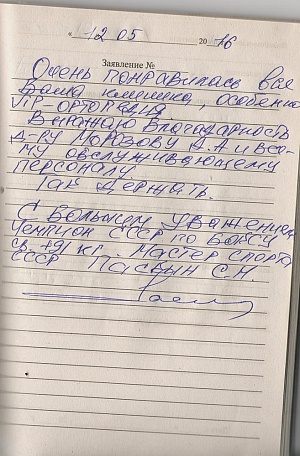 « 12 05 20 16
Заявление №
Очень понравилась вся
Ваша клиника, особенно
VIP-ортопедия
Выражаю Благодарность
Д-РУ Морозову А.А и все-
му обслуживающему
персоналу.
Так держать.
С Большим уважением
Чемпион СССР по Боксу
св. +91 кг. Мастер спорта
СССР С.Н.